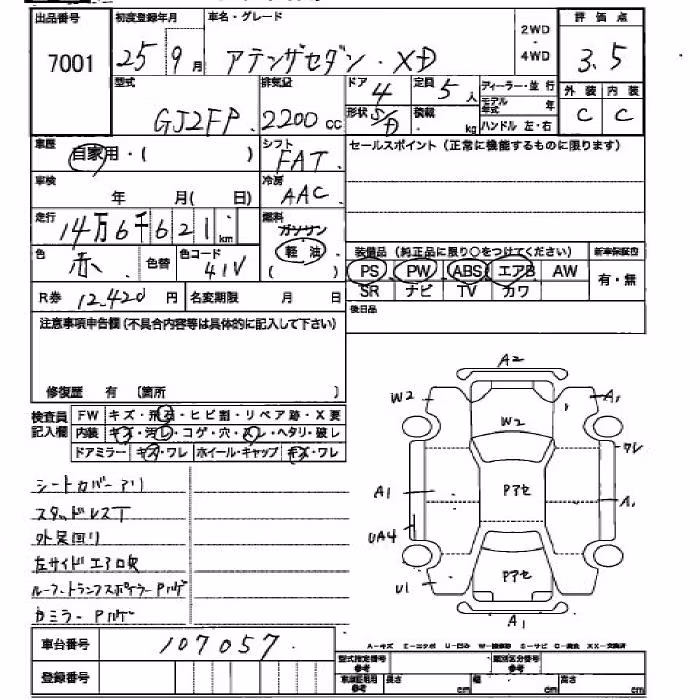 出品番号 初度登録年月 車名・グレード 2WD・4WD 評価点
7001 25 9月 アテンザセダン・XD 3.5
型式 排気量 ドア 定員 ディーラー・並行 外装 内装
GJ2FP 2200cc 4 5人 モデル年式 年 C C
形状 S/D 積載 kg ハンドル 左・右
車歴 自家用・( ) シフト FAT セールスポイント(正常に機能するものに限ります)
車検 年 月( 日) 冷房 AAC
走行 14万6千621km 燃料 ガソリン
軽油
( )
色 赤 色替 色コード 41V 装備品(純正品に限り○をつけてください) 新車保証書
PS PW ABS エアB AW 有・無
R券 12,420円 名変期限 月 日 SR ナビ TV カワ
注意事項申告欄(不具合内容等は具体的に記入して下さい) 後日品
修復歴 有 〔箇所 〕
検査員記入欄 FW キズ・飛石・ヒビ割・リペア跡・X要
内装 キズ・汚レ・コゲ・穴・スレ・ヘタリ・破レ
ドアミラー キズ・ワレ ホイール・キャップ キズ・ワレ
A2
W2 A1
W2
ワレ
A1 Pアセ A1
UA4
U1 Pアセ
A1
シートカバーアリ
スタッドレスT
外装回リ
左サイドエアロ欠
ルーフ・トランクスポイラーPハゲ
カミラーPハゲ
車台番号 107057
A-キズ E-エクボ U-凹ミ W-補修跡 S-サビ C-腐食 XX-交換済
登録番号 型式指定番号 参考 類別区分番号 参考
車庫証明用 参考 長さ cm 幅 cm 高さ cm